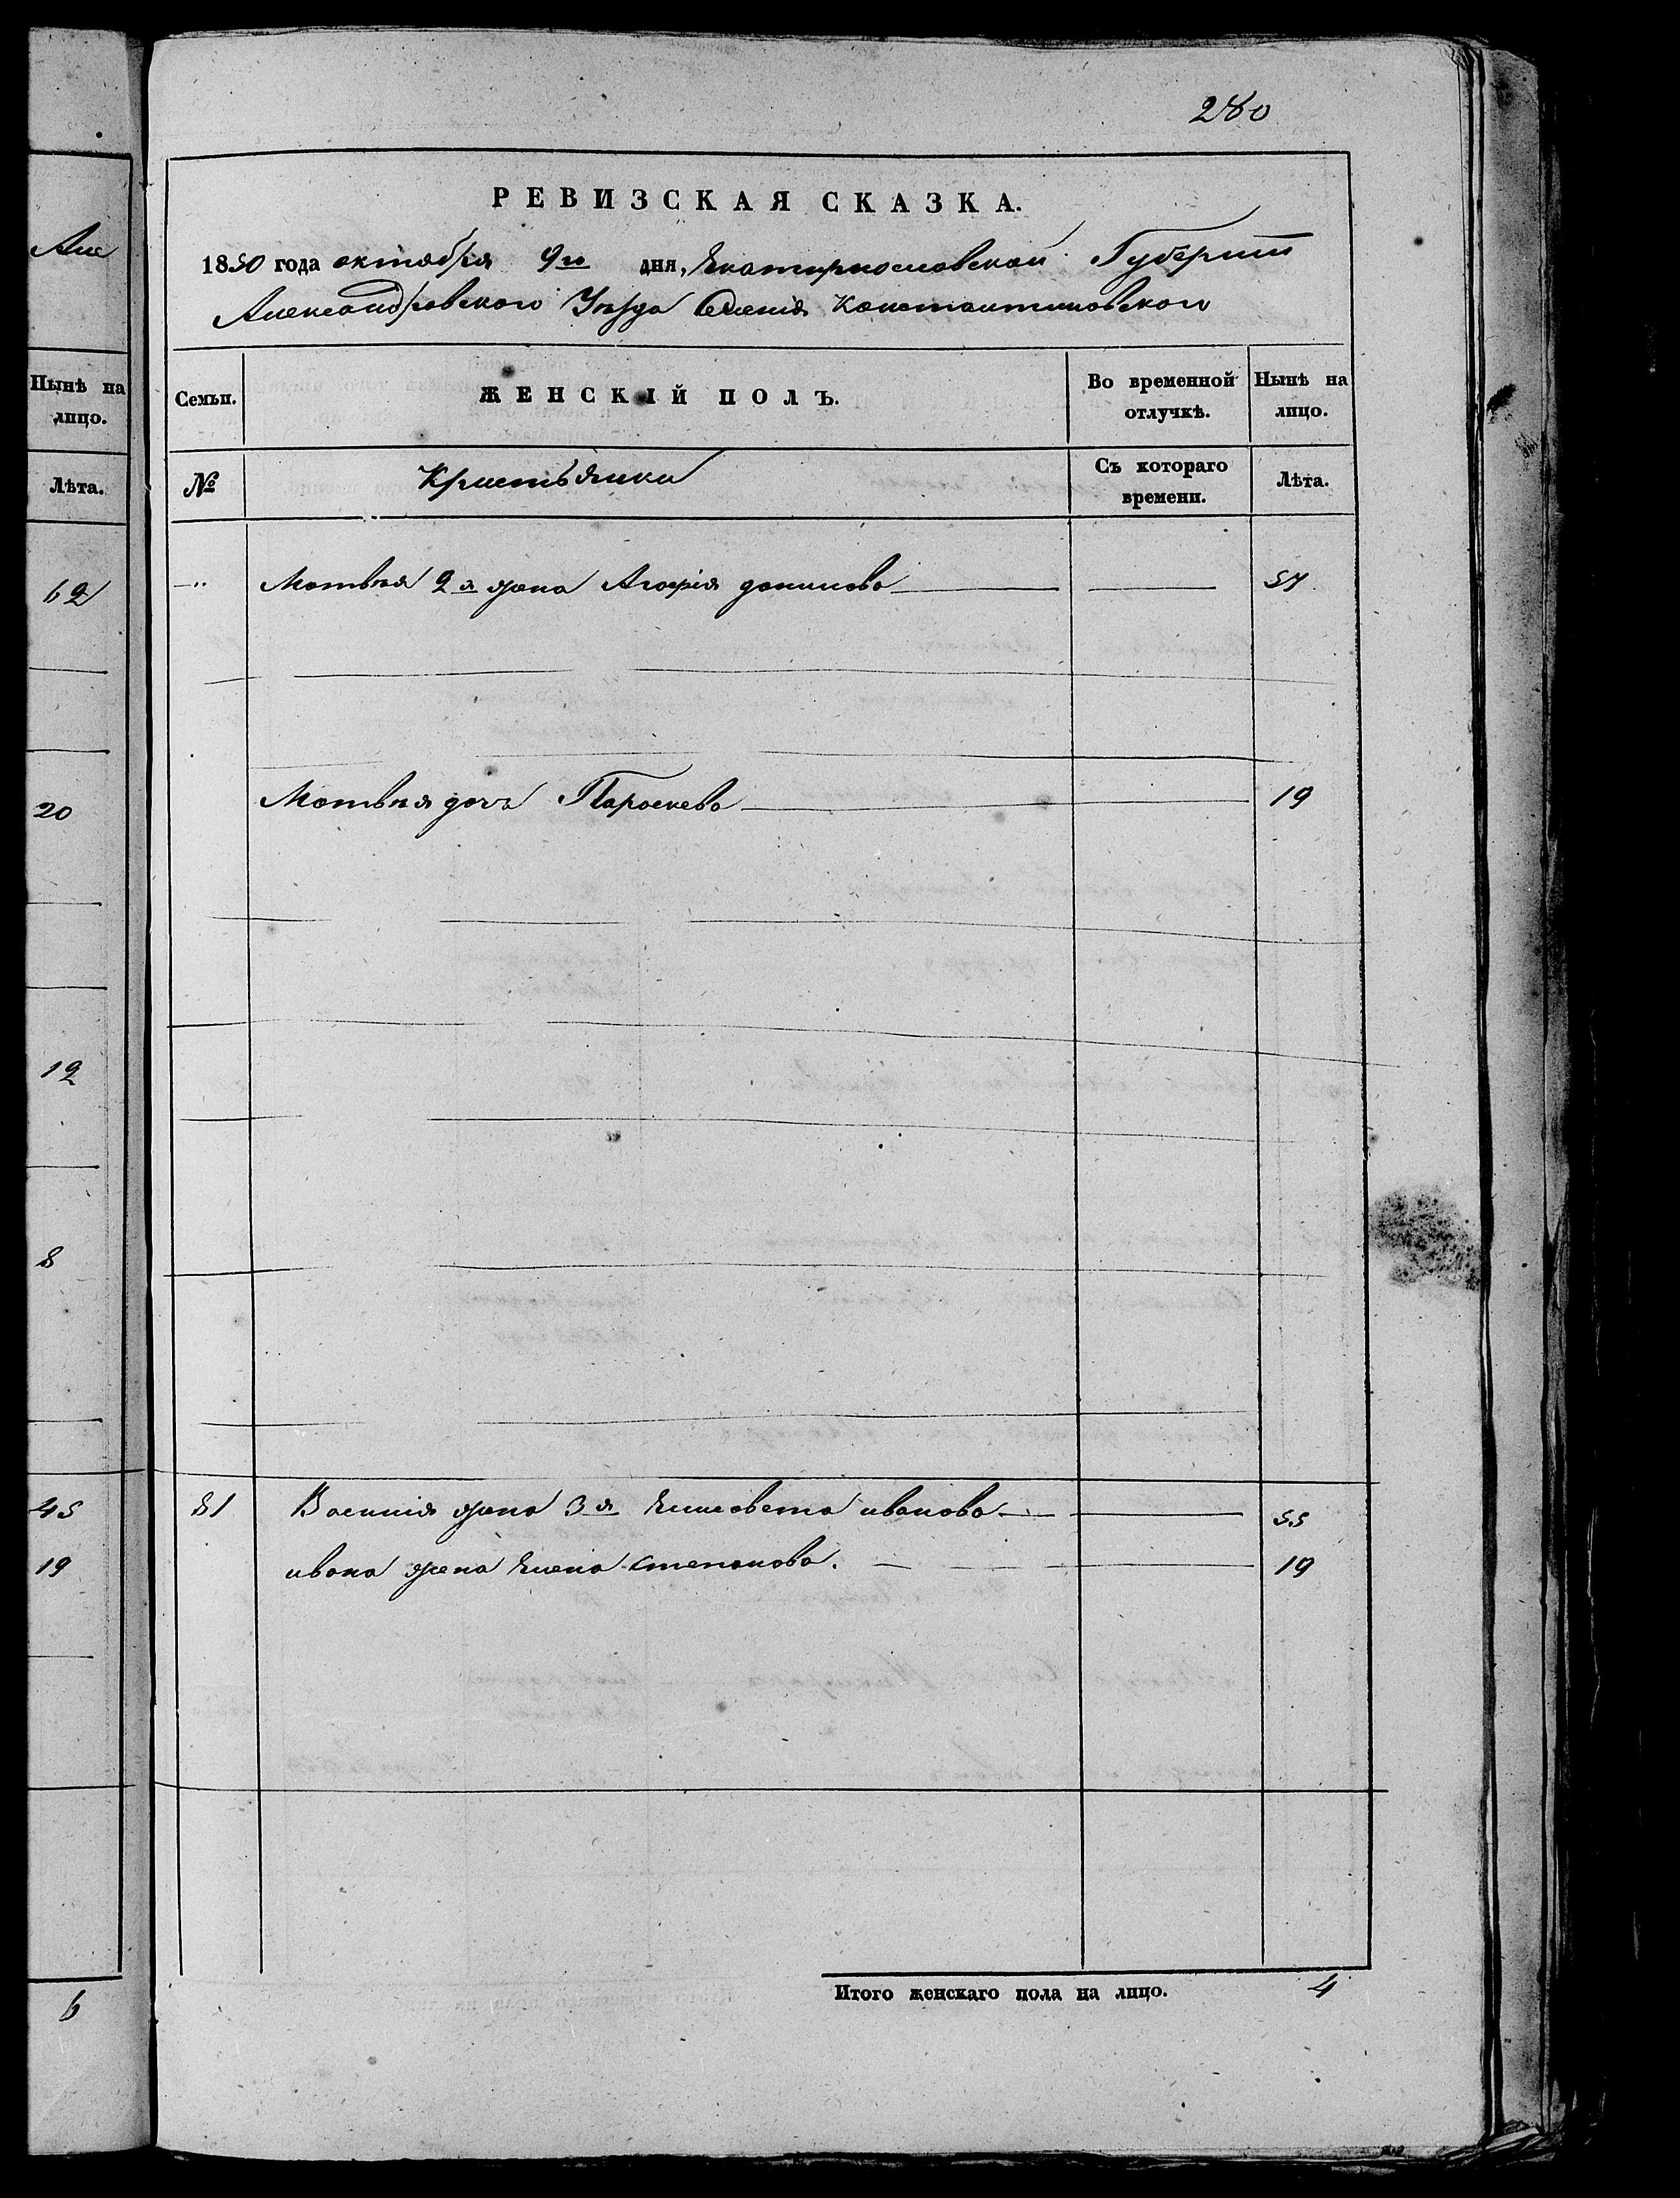 280
РЕВИЗСКАЯ СКАЗКА.
1850 года октября 9го дня, Екатеринославской Губернии
Александровского Уезда Селения Константиновского
Але
Нынѣ на лицо.
Лѣта.
62
20
12
8
45
19
6
Семьи.
ЖЕНСКІЙ ПОЛЪ.
Во временной отлучкѣ.
Нынѣ на лицо.
№
Кристьянки
Съ котораго времени.
Лѣта.
Матвея 2я жена Агафія данилова 57
Матвея дочь Параскева 19
81 Василия жена 3я Елисавета иванова 55
ивана жена Елена степанова. 19
Итого женскаго пола на лицо. 4